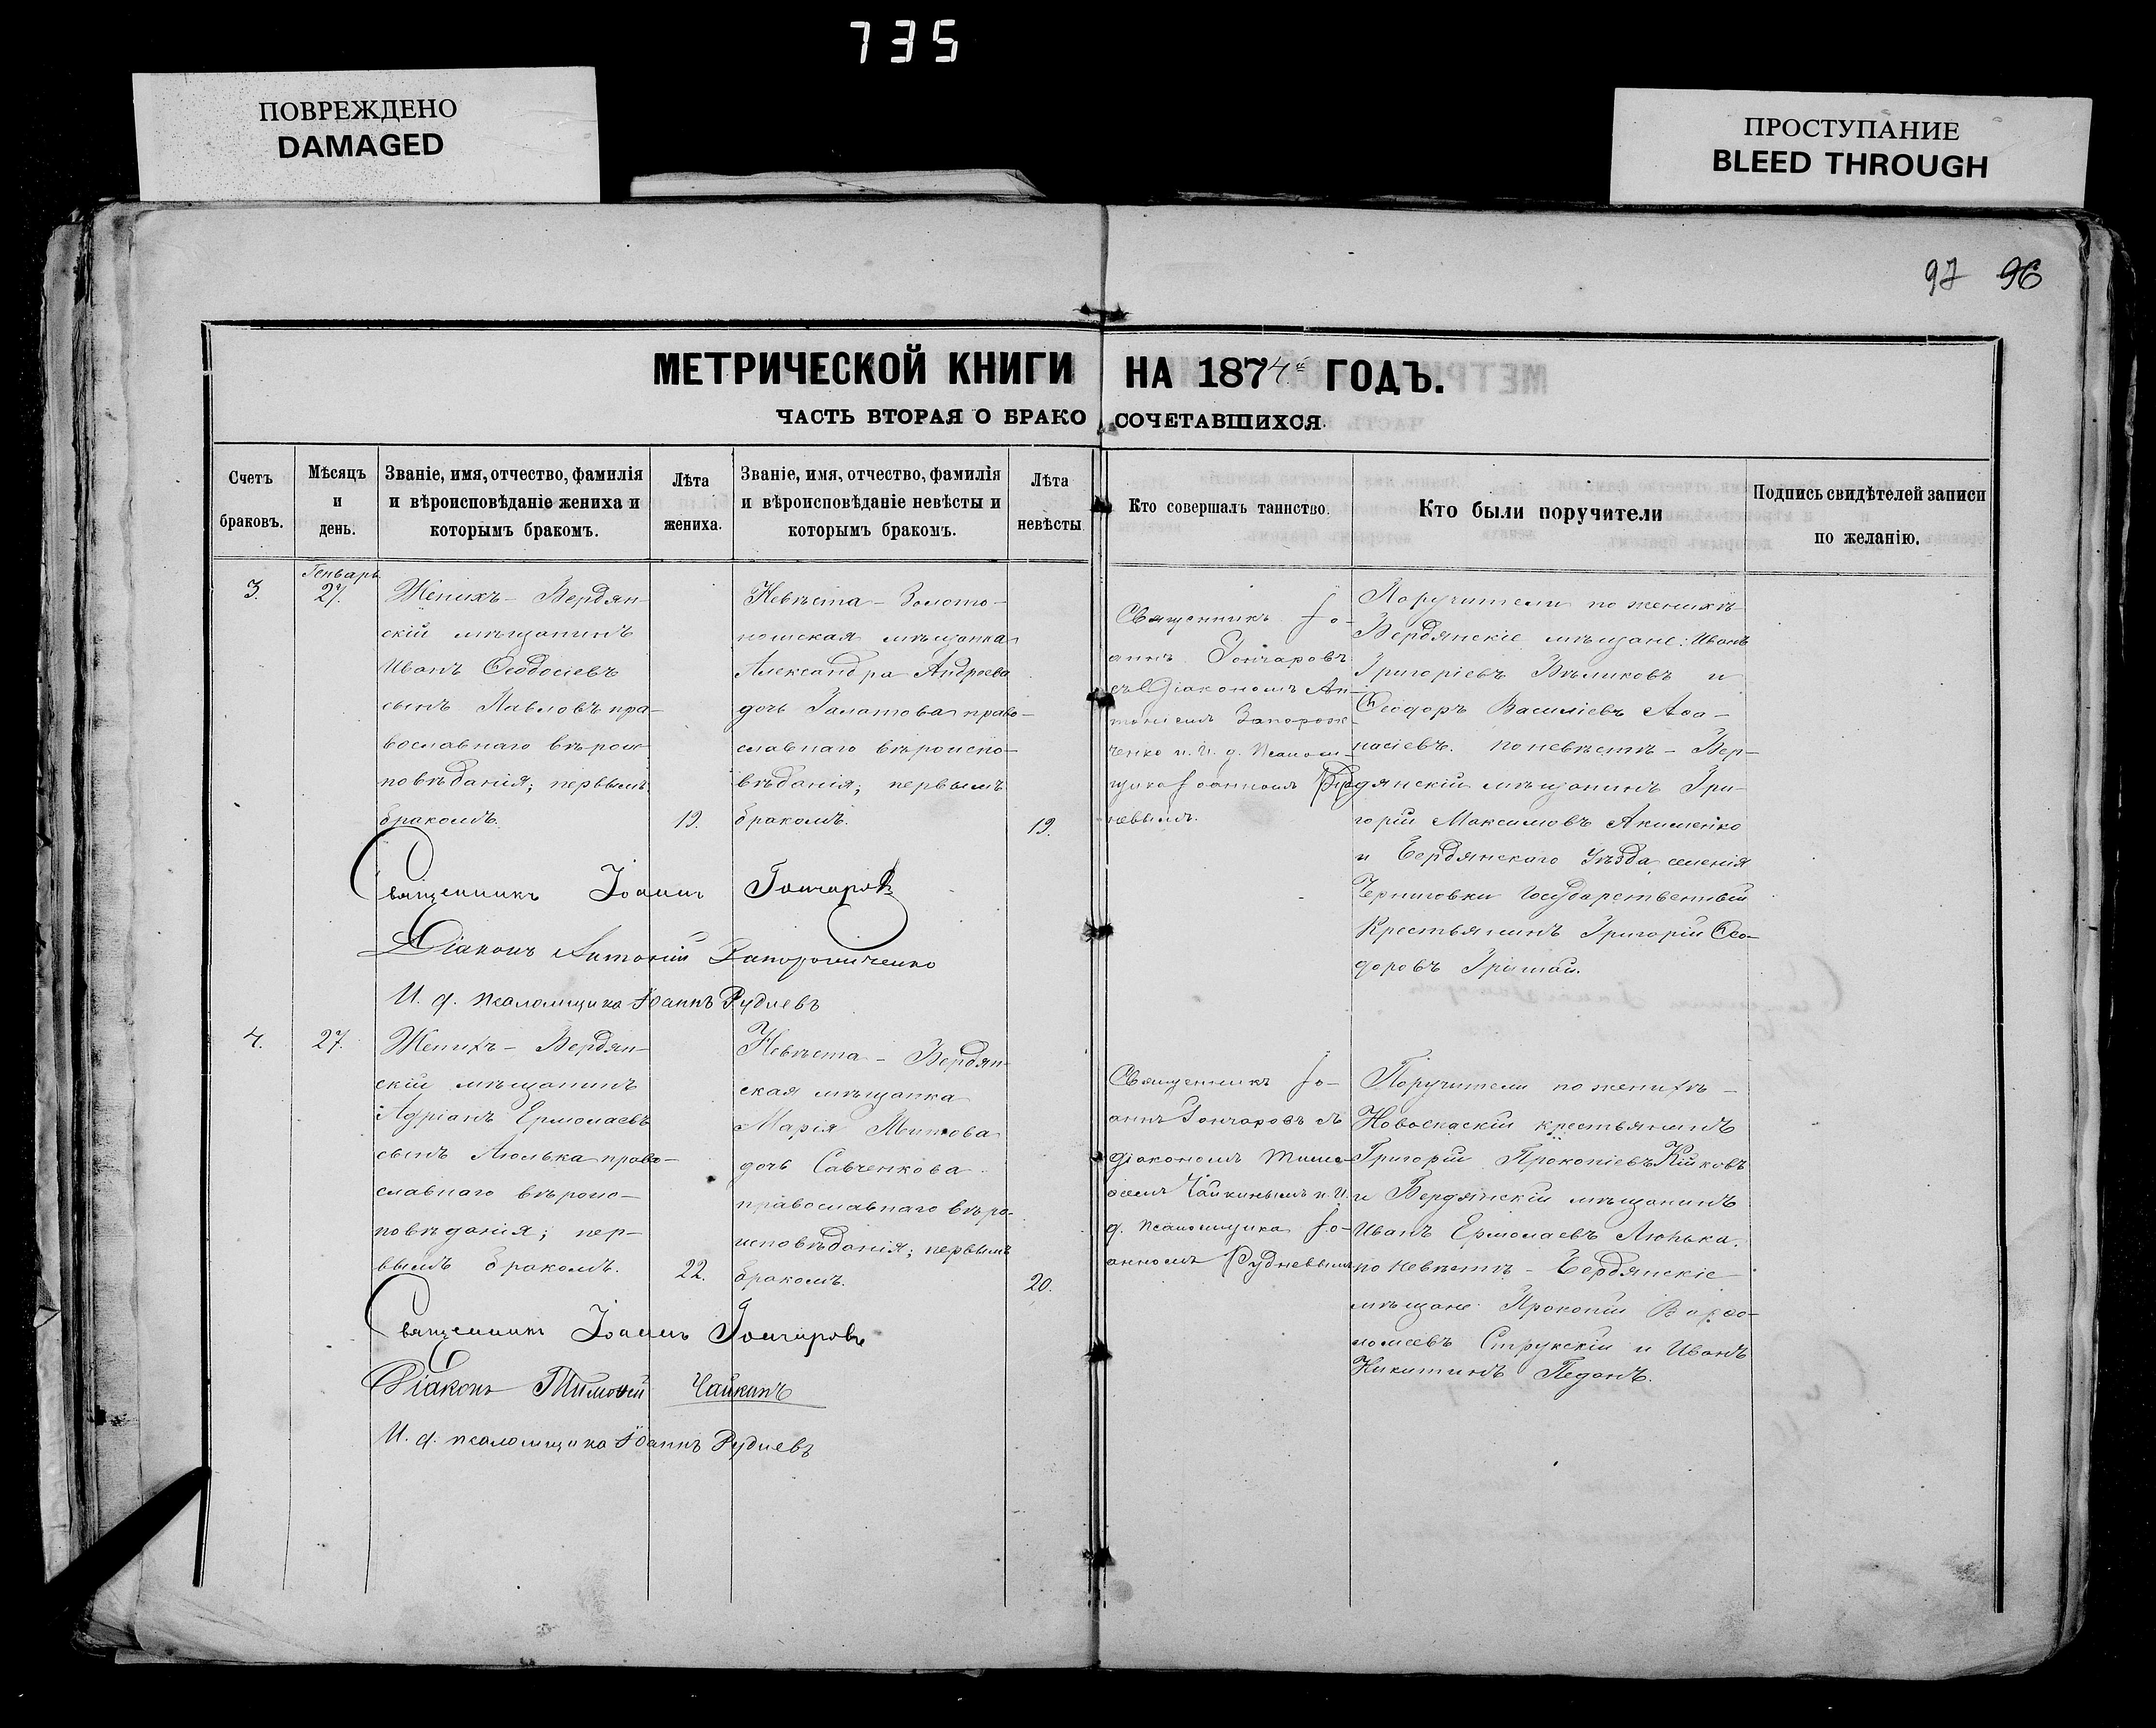 735
ПОВРЕЖДЕНО
DAMAGED
ПРОСТУПАНИЕ
BLEED THROUGH
97 96
МЕТРИЧЕСКОЙ КНИГИ НА 1874й ГОДЪ.
ЧАСТЬ ВТОРАЯ О БРАКОСОЧЕТАВШИХСЯ.
Счетъ
браковъ.
Мѣсяцъ
и
день.
Званіе, имя, отчество, фамилія
и вѣроисповѣданіе жениха и
которымъ бракомъ.
Лѣта
жениха.
Званіе, имя, отчество, фамилія
и вѣроисповѣданіе невѣсты и
которымъ бракомъ.
Лѣта
невѣсты.
Кто совершалъ таинство.
Кто были поручители
Подпись свидѣтелей записи
по желанію.
3.
Генварь
27.
Женихъ - Бердян-
скій мѣщанинъ
Иванъ Ѳеодосіевъ
сынъ Павловъ пра-
вославнаго вѣроис-
повѣданія; первымъ
бракомъ.
19.
Невѣста - Золото-
ношская мѣщанка
Александра Андреева
дочь Золотова право-
славнаго вѣроиспо-
вѣданія; первымъ
бракомъ.
19.
Священникъ Іо-
аннъ Гончаровъ
съ Діакономъ Ан-
тоніемъ Запорож-
ченко и И. д. псалом-
щика Іоанномъ Руд-
невымъ.
Поручители по женихѣ
Бердянскіе мѣщане: Иванъ
Григоріевъ Великовъ и
Ѳеодоръ Василіевъ Аѳа-
насіевъ. по невѣстѣ - Бер-
дянскій мѣщанинъ Гри-
горій Максимовъ Акименко
и Бердянскаго Уѣзда селенія
Черниговки Государственный
Крестьянинъ Григорій Ѳео-
доровъ Грицай.
Священникъ Іоаннъ Гончаровъ
Діаконъ Антоній Запорожченко
И. д. псаломщика Іоаннъ Рудневъ
4.
27.
Женихъ - Бердян-
скій мѣщанинъ
Адріанъ Ермолаевъ
сынъ Люлька право-
славнаго вѣроис-
повѣданія; пер-
вымъ бракомъ.
22.
Невѣста - Бердян-
ская мѣщанка
Марія
дочь Савченкова
православнаго вѣро-
исповѣданія; первымъ
бракомъ.
20.
Священникъ Іо-
аннъ Гончаровъ съ
діакономъ Тимо-
ѳеемъ Чайкинымъ и И.
д. псаломщика Іо-
анномъ Рудневымъ
Поручители по женихѣ -
Новоспаскій крестьянинъ
Григорій Прокопіевъ
и Бердянскій мѣщанинъ
Иванъ Ермолаевъ Люлька.
по невѣстѣ - Бердянскіе
мѣщане: Прокопій Варѳо-
ломеевъ Струкскій и Иванъ
Никитинъ Педанъ.
Священникъ Іоаннъ Гончаровъ
Діаконъ Тимоѳей Чайкинъ
И. д. псаломщика Іоаннъ Рудневъ